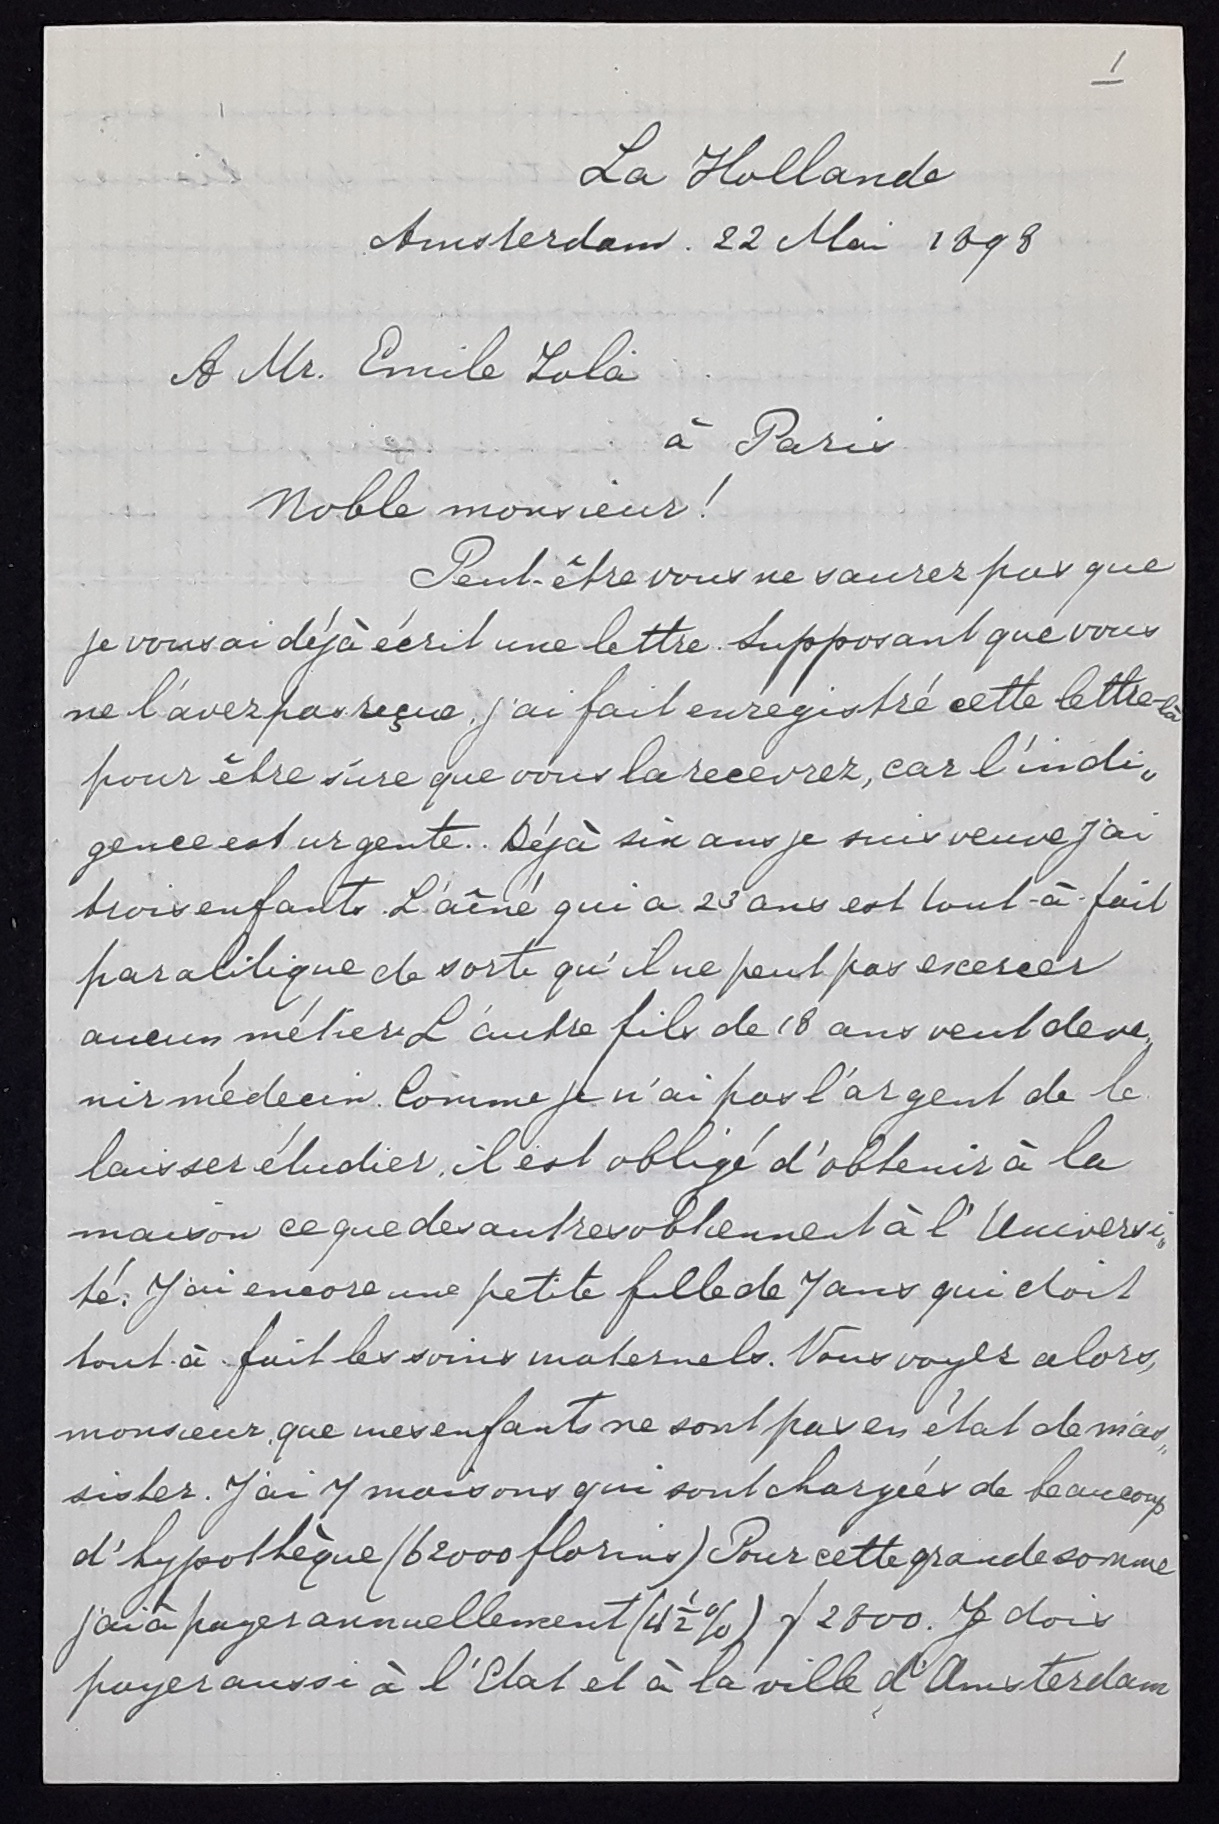 1
La Hollande
Amsterdam. 22 Mai 1898
A Mr. Emile Zola
à Paris
Noble monsieur!
Peut-être vous ne saurez pas que
je vous ai déjà écrit une lettre. Supposant que vous
ne l'avez pas reçue, j'ai fait enrégistré cette lettre-là
pour être sûre que vous la recevrez, car l'indi„
gence est urgente.. Déjà six ans je suis veuve j'ai
trois enfants. L'aîné qui a 23 ans est tout-à-fait
paralitique de sorte qu'il ne peut pas exercer
aucun métier. L'autre fils de 18 ans veut deve„
nir médecin. Comme je n'ai pas l'argent de le
laisser étudier, il est obligé d'obtenir à la
maison ce que des autres obtiennent à l'Universi„
té. J'ai encore une petite fille de 7 ans qui doit
tout-à-fait les soins maternels. Vous voyez alors,
monsieur, que mes enfants ne sont pas en état de m'as„
sister. J'ai 7 maisons qui sont chargées de beaucoup
d'hypothèque (62000 florins) Pour cette grande somme
j'ai à payer annuellement (4½ %) ƒ 2800. Je dois
payer aussi à l'Etat et à la ville d'Amsterdam